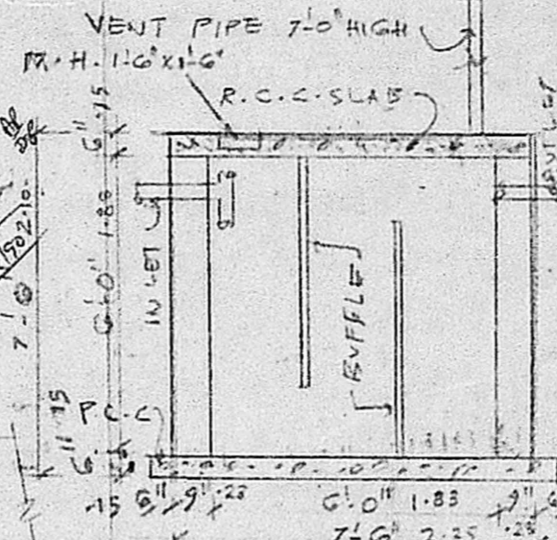 VENT PIPE 7'-0" HIGH
M.H. 1'-6" x 1'-6"
R.C.C. SLAB
6" .15
6'-0" 1.83
7'-0"
INLET
BUFFLE
P.C.C
6" .15
.15 6" 9" .23 6'-0" 1.83 9"
7'-6" 2.25 .23